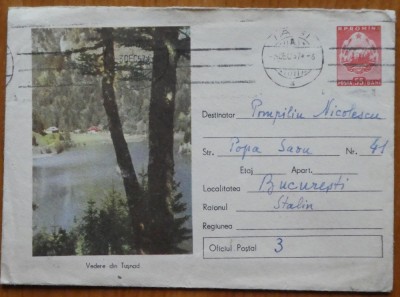 R.P.ROMINA
Destinatar Pompiliu Nicolescu
Str. Popa Savu Nr. 41
Etaj Apart.
Localitatea București
Raionul Stalin
Regiunea
Oficiul Poștal 3
Vedere din Tușnad